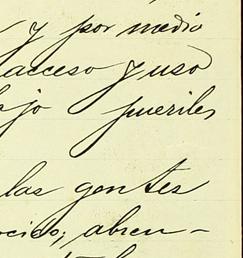 y por medio
acceso y uso
jo pueriles
las gentes
ocido; abren-